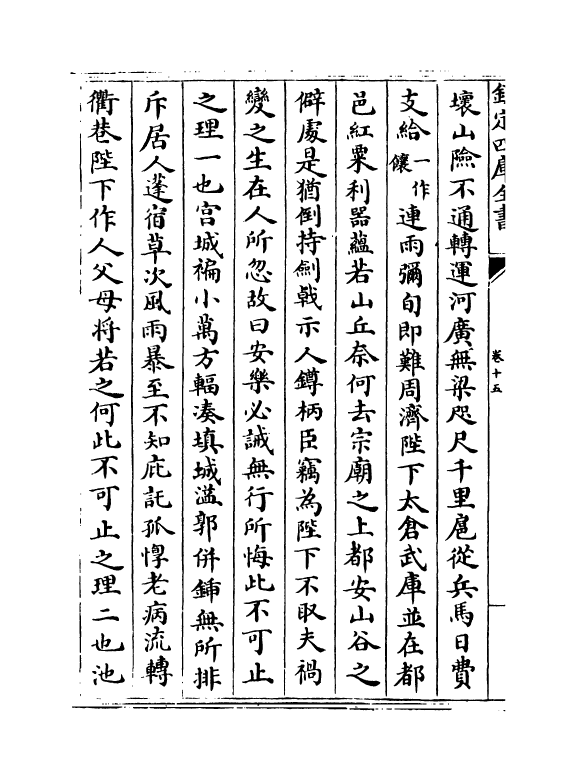 欽定四庫全書
卷十五
壞山險不通轉運河廣無梁咫尺千里扈從兵馬日費
支給一作饟連雨彌旬即難周濟陛下太倉武庫並在都
邑紅粟利器蘊若山丘奈何去宗廟之上都安山谷之
僻處是猶倒持劍㦸示人鐏柄臣竊為陛下不取夫禍
變之生在人所忽故曰安樂必誡無行所悔此不可止
之理一也宫城褊小萬方輻凑填城溢郭併鍤無所排
斥居人蓬宿草次風雨暴至不知庇託孤惸老病流轉
衢巷陛下作人父母将若之何此不可止之理二也池